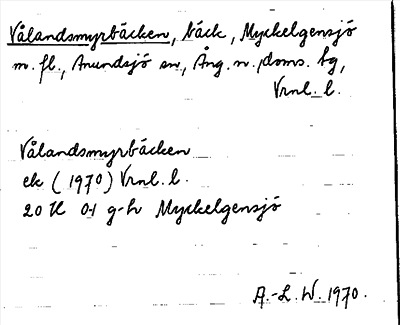 Vålandsmyrbäcken, bäck, Myckelgensjö
m. fl., Anundsjö sn, Ång. n., doms. bg,
Vrnl. l.
Vålandsmyrbäcken
ek (1970) Vrnl. l.
20 H 01 g-h Myckelgensjö
A.-L. W. 1970.